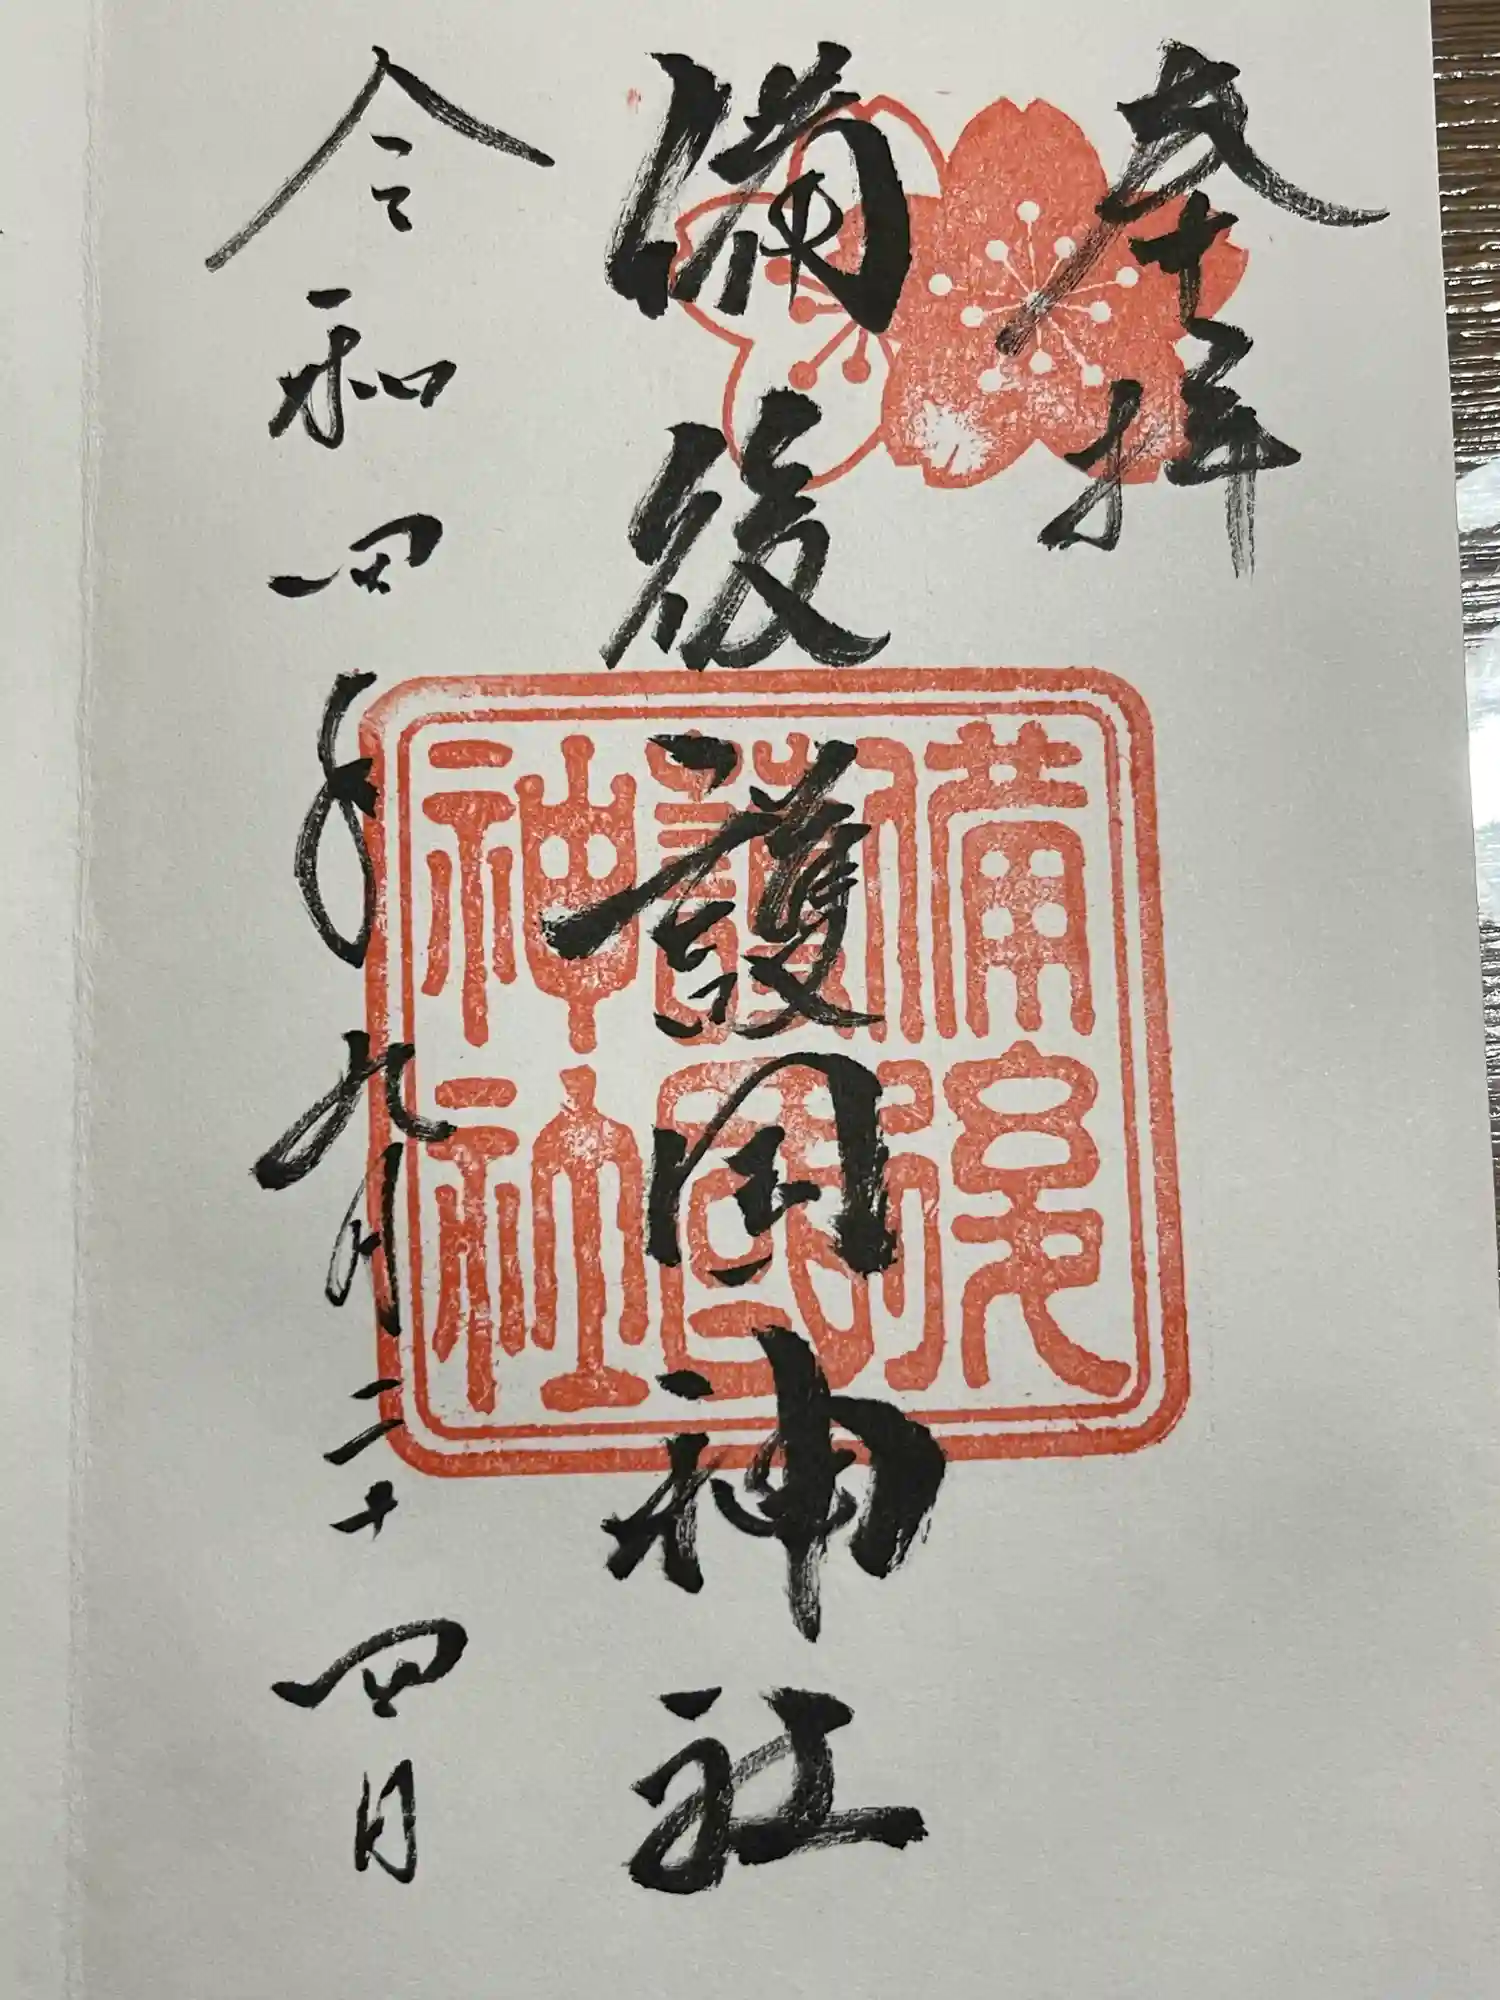 奉拝
備後護国神社
令和四年九月二十四日
備後
護國
神社